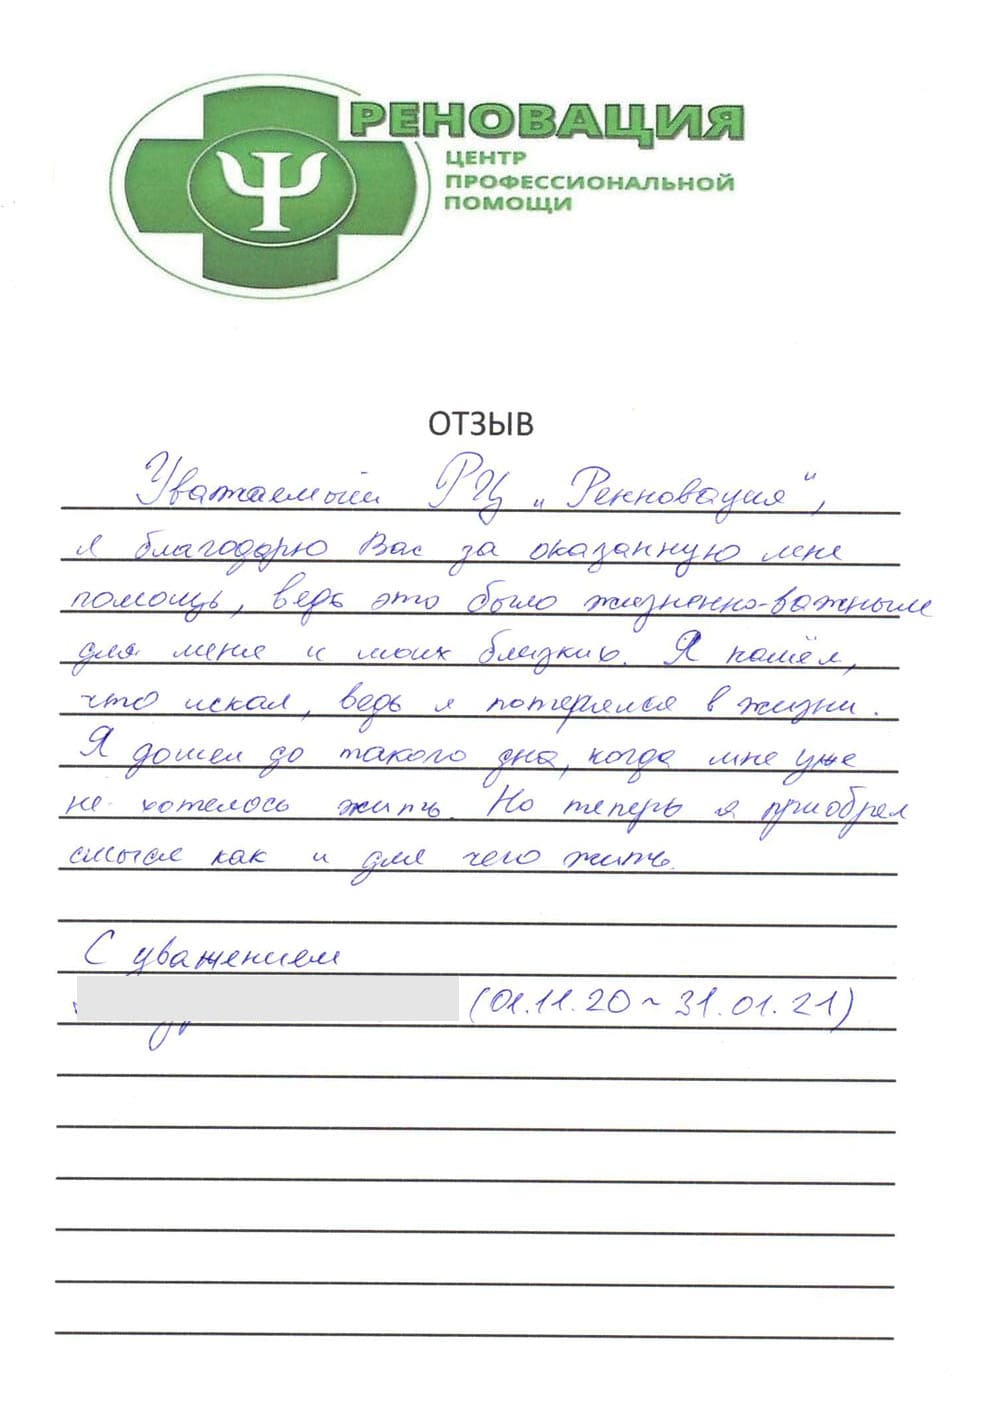 РЕНОВАЦИЯ
ЦЕНТР
ПРОФЕССИОНАЛЬНОЙ
ПОМОЩИ
ОТЗЫВ
Уважаемый РЦ „Ренновация“,
я благодарю Вас за оказанную мне
помощь, ведь это было жизненно-важным
для меня и моих близких. Я нашёл,
что искал, ведь я потерялся в жизни.
Я дошел до такого дна, когда мне уже
не хотелось жить. Но теперь я приобрел
смысл как и для чего жить.
С уважением
(01.11.20 ~ 31.01.21)